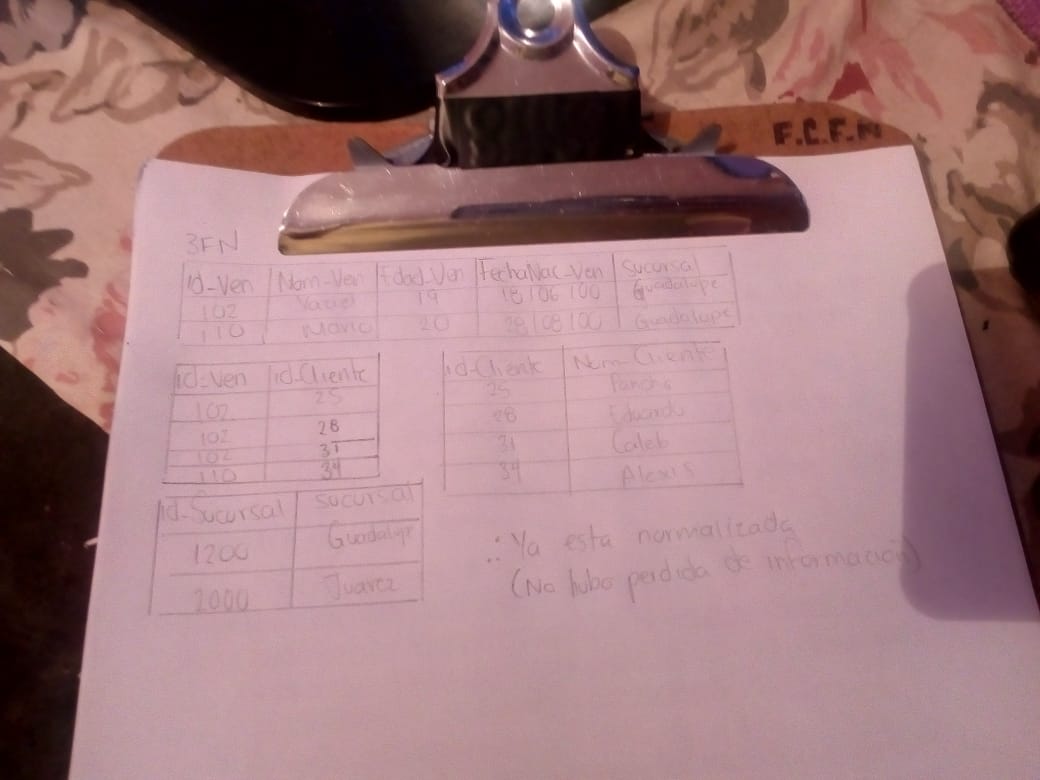 F.C.F.M
3FN
id-Ven Nom-Ven Edad-Ven FechaNac-Ven Sucursal
102 19 18/06/00 Guadalupe
110 Mario 20 28/08/00 Guadalupe
id-Ven id-Cliente
102 25
102 28
102 31
110 34
id-Cliente Nom-Cliente
25 Pancho
28 Eduardo
31 Caleb
34 Alexis
id-Sucursal sucursal
1200 Guadalupe
2000 Juarez
∴ Ya esta normalizada
(No hubo perdida de información)